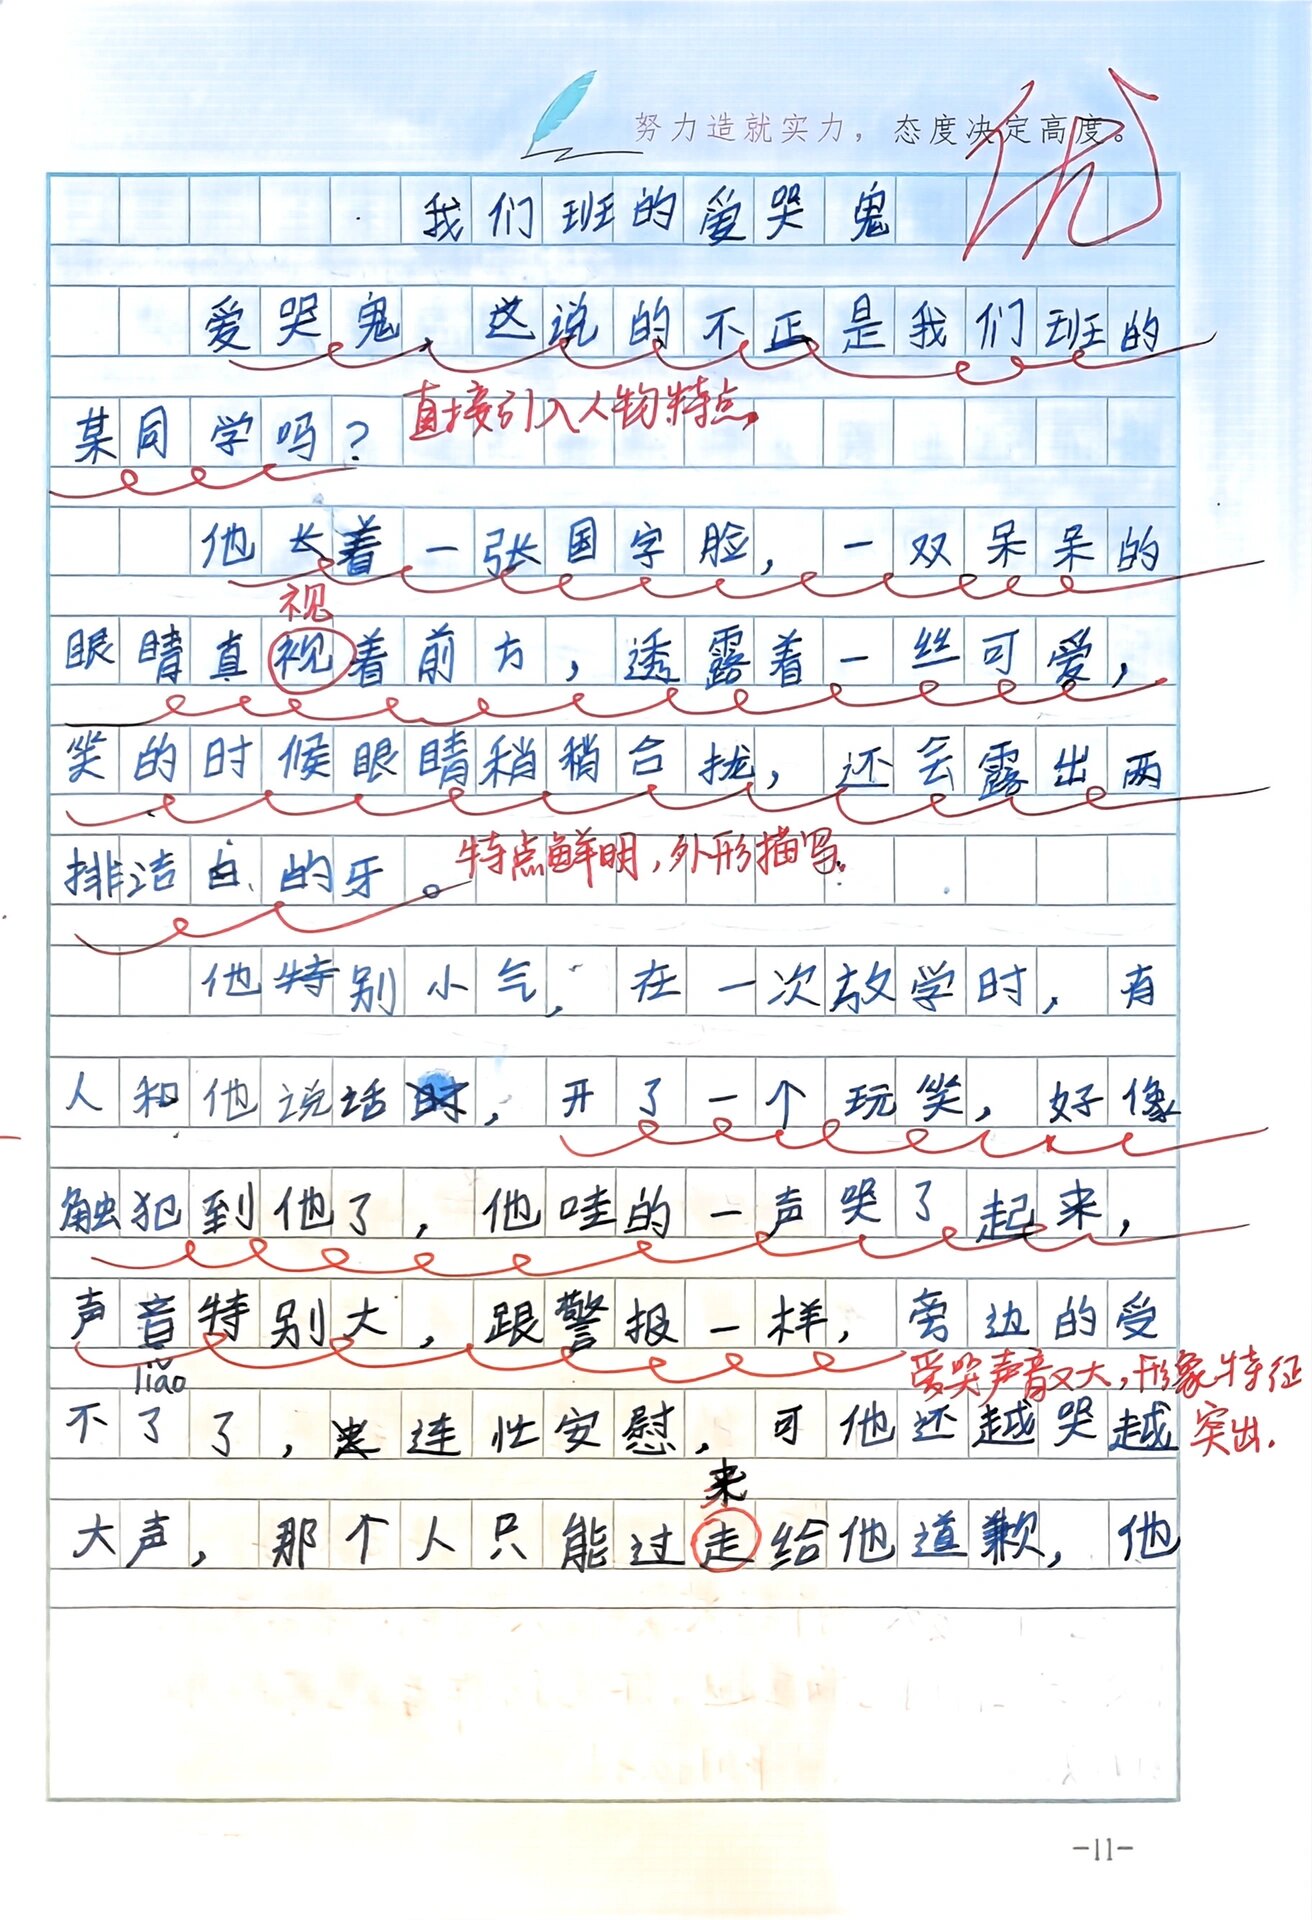 努力造就实力，态度决定高度。
优
我们班的爱哭鬼
爱哭鬼，这说的不正是我们班的
直接引入人物特点。
某同学吗？
他长着一张国字脸，一双呆呆的
视
眼睛直视着前方，透露着一丝可爱，
笑的时候眼睛稍稍合拢，还会露出两
特点鲜明，外形描写。
排洁白的牙。
他特别小气，在一次放学时，有
人和他说话，开了一个玩笑，好像
触犯到他了，他哇的一声哭了起来，
声音特别大，跟警报一样，旁边的受
liǎo
爱哭声音又大，形象特征
不了了，连忙安慰，可他还越哭越
突出.
来
大声，那个人只能过走给他道歉，他
-11-